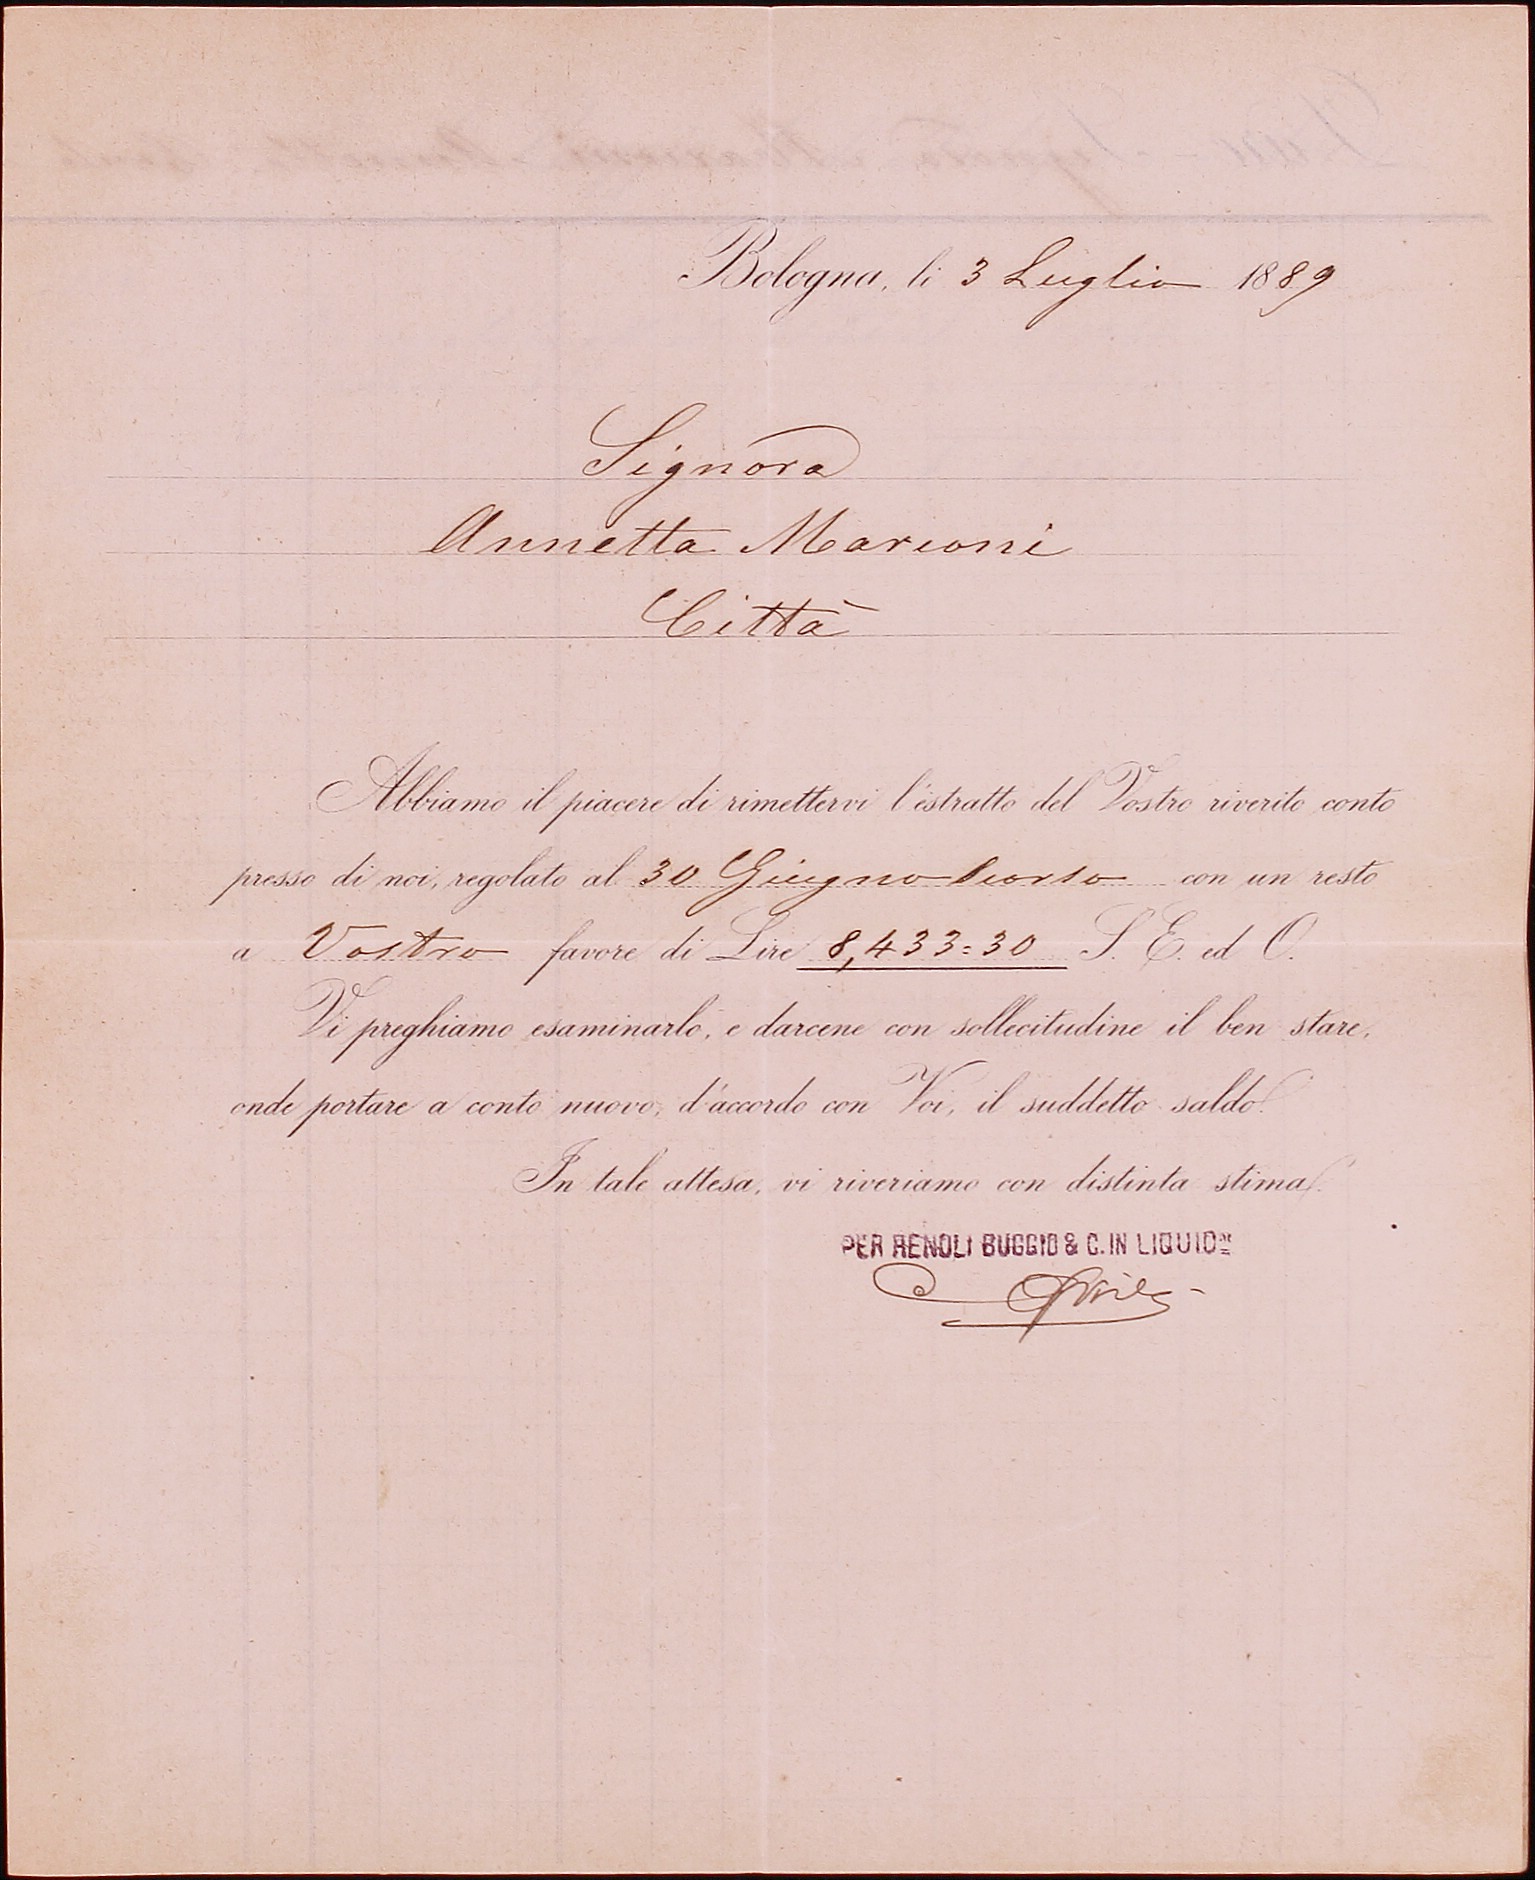 Bologna, li 3 Luglio 1889
Signora
Annetta Marconi
Città
Abbiamo il piacere di rimettervi l'estratto del Vostro riverito conto
presso di noi, regolato al 30 Giugno scorso con un resto
a Vostro favore di Lire 8,433=30 S. E. ed O.
Vi preghiamo esaminarlo, e darcene con sollecitudine il ben stare,
onde portare a conto nuovo, d'accordo con Voi, il suddetto saldo.
In tale attesa, vi riveriamo con distinta stima.
PER RENOLI BUGGIO & C. IN LIQUID.NE